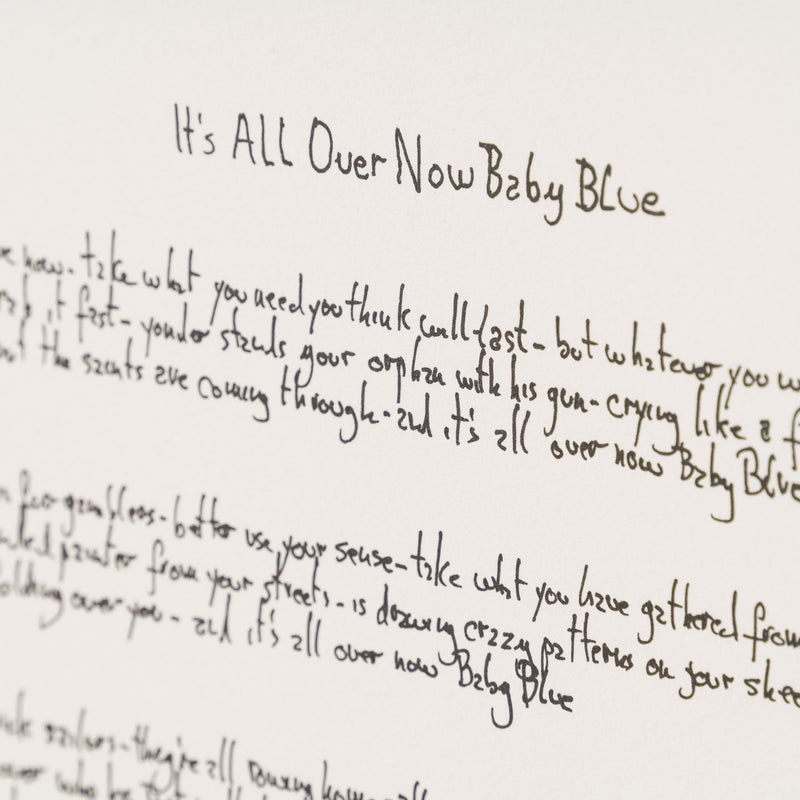 It's ALL Over Now Baby Blue
now - take what you need you think will last - but whatever you w
it fast - yonder stands your orphan with his gun - crying like a f
the saints are coming through - and it's all over now Baby Blue
for gamblers - better use your sense - take what you have gathered from
painter from your streets - is drawing crazy patterns on your shee
olding over you - and it's all over now Baby Blue
sailors - they're all rowing home all